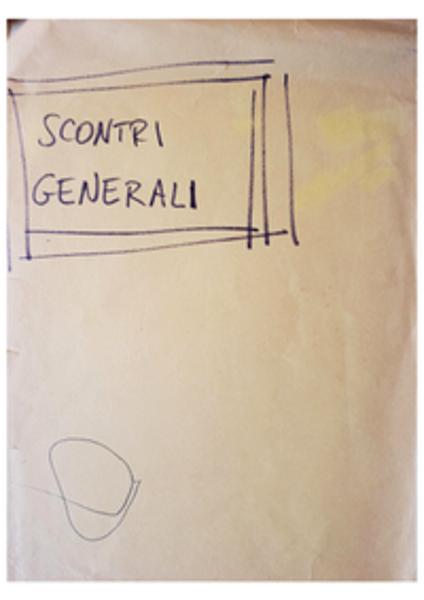 SCONTRI
GENERALI